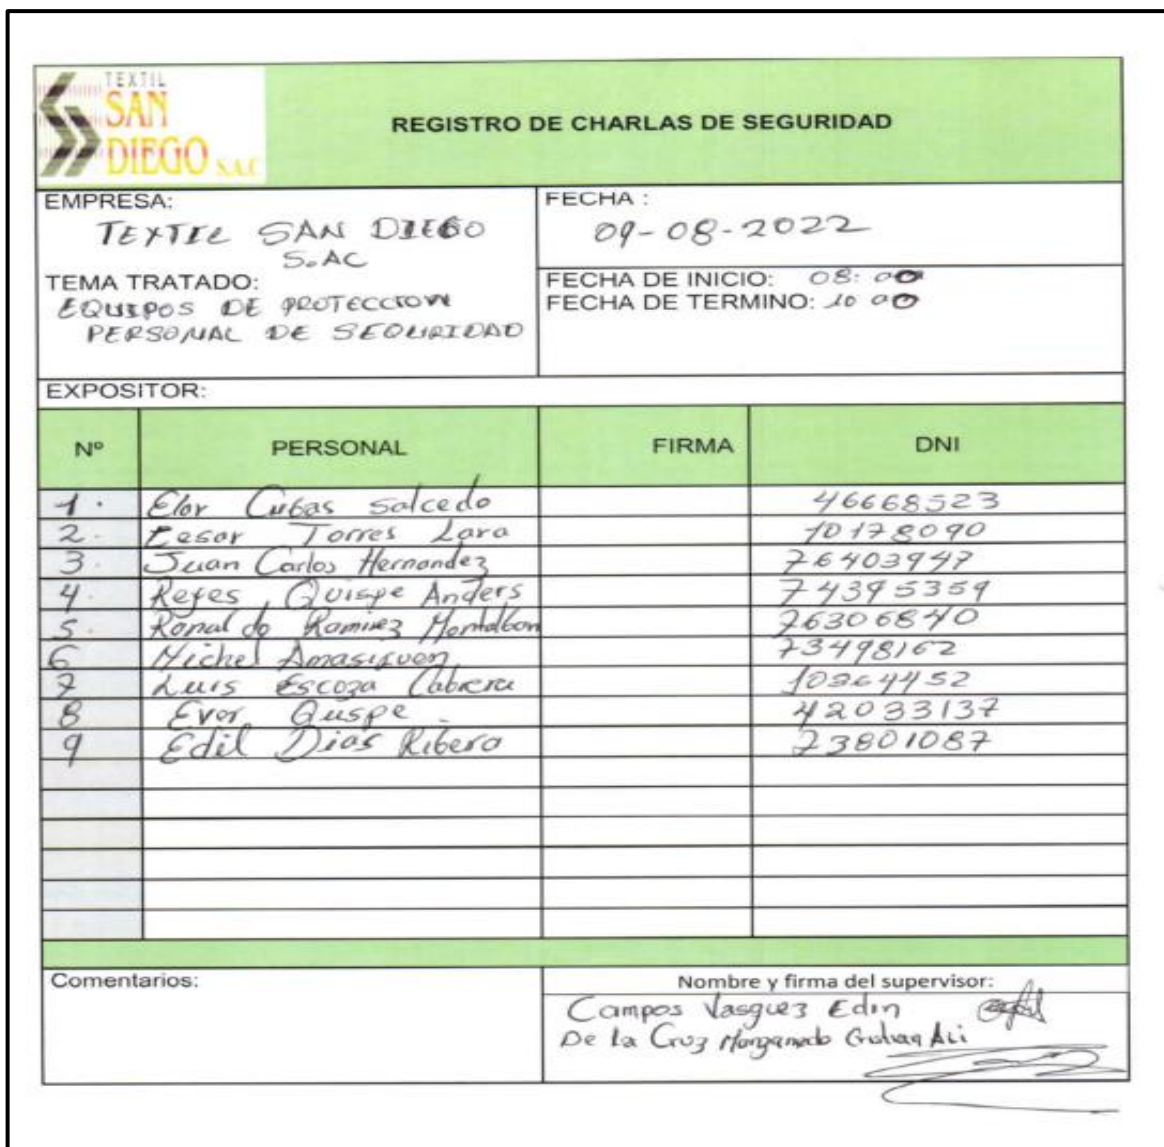 TEXTIL
SAN
DIEGO S.A.C
REGISTRO DE CHARLAS DE SEGURIDAD
EMPRESA:
TEXTIL SAN DIEGO
S.AC
FECHA :
09-08-2022
TEMA TRATADO:
EQUIPOS DE PROTECCION
PERSONAL DE SEGURIDAD
FECHA DE INICIO: 08:00
FECHA DE TERMINO: 10 00
EXPOSITOR:
Nº PERSONAL FIRMA DNI
1. Elor Cubas Salcedo 46668523
2. Cesar Torres Lara 10178090
3. Juan Carlos Hernandez 76403947
4. Reyes Quispe Anders 74395359
5. Ronaldo Ramirez Montalban 76306840
6 Michel Amasifuen 73498162
7 Luis Escoza Cabrera 10364452
8 Ever Quspe 42033137
9 Edil Dias Ribero 73801087
Comentarios:
Nombre y firma del supervisor:
Campos Vasquez Edin
De la Cruz Ali